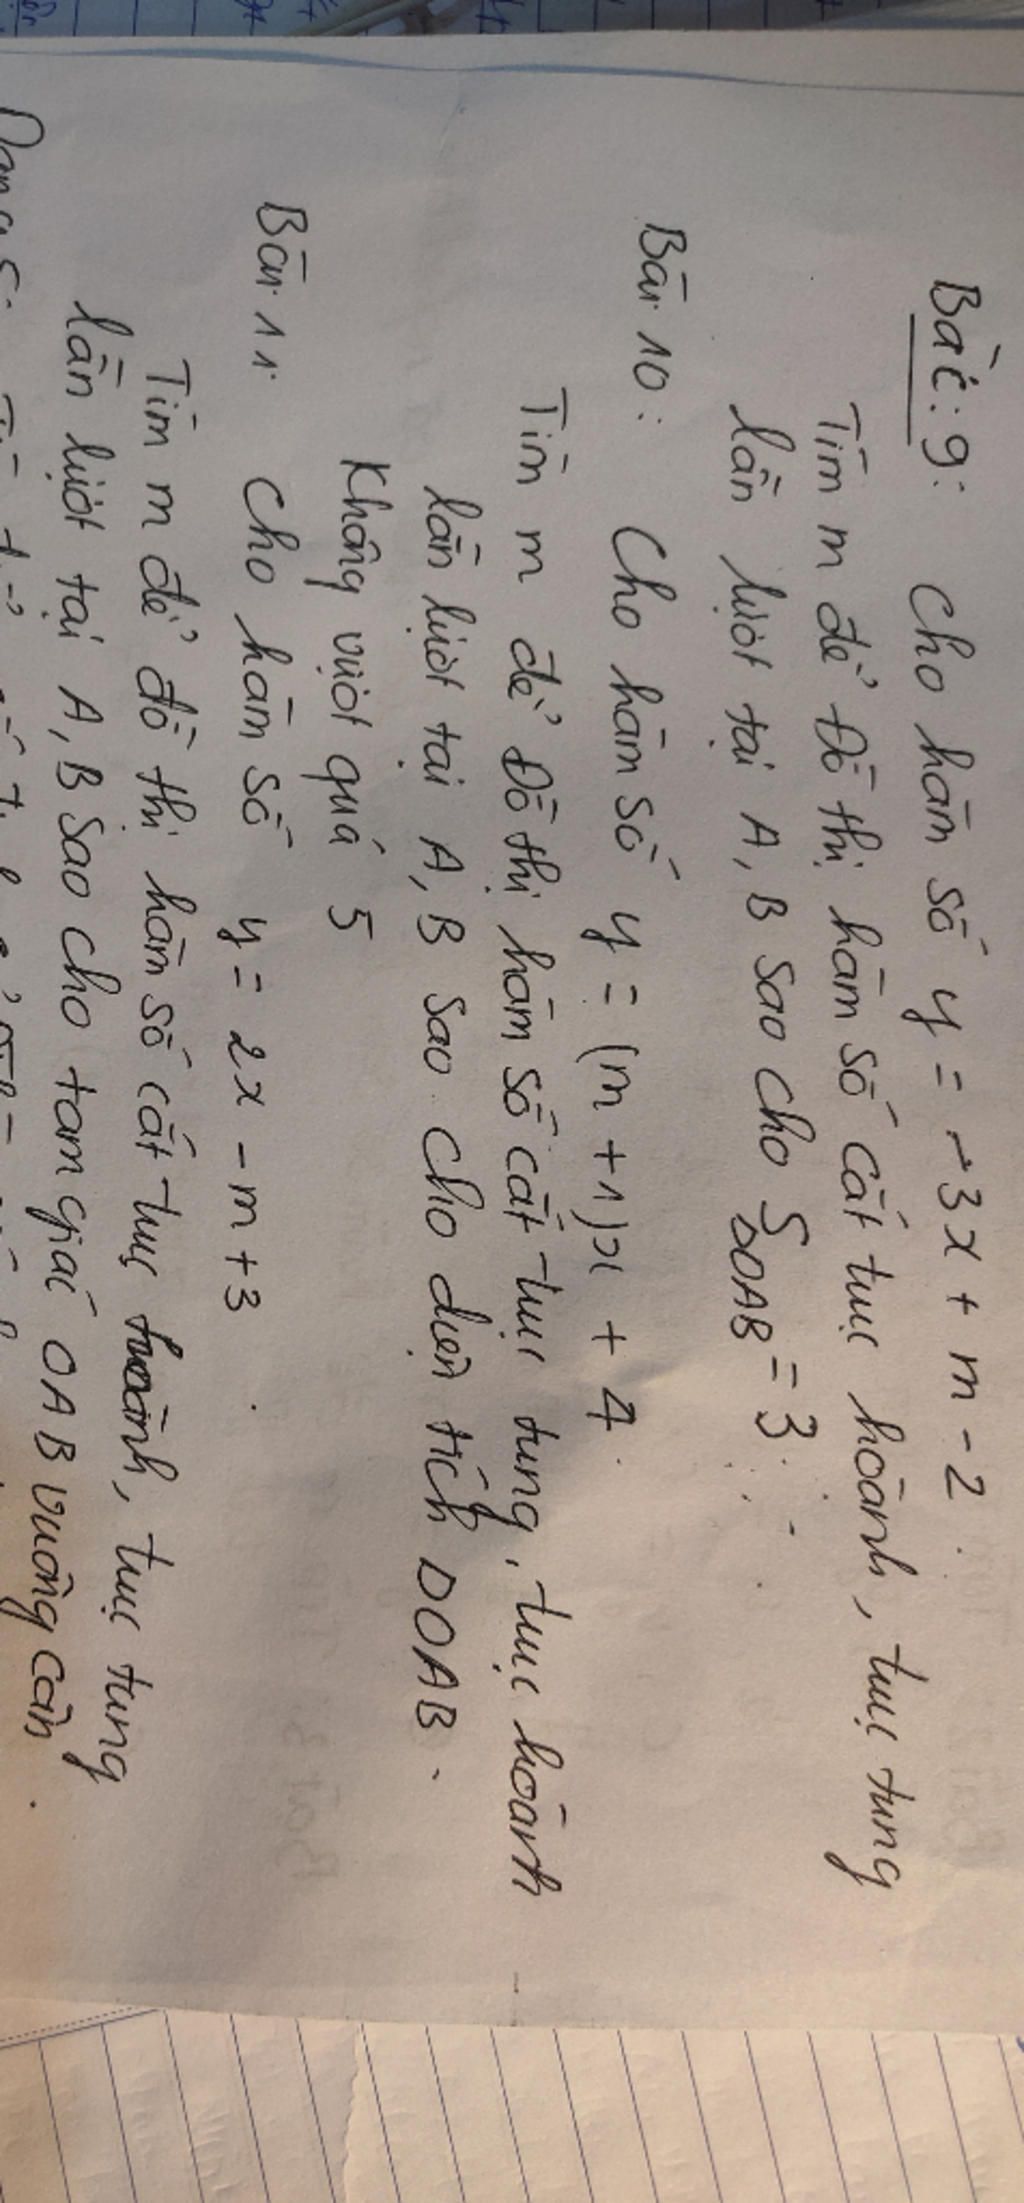 Bài: 9: Cho hàm số y = -3x + m - 2
Tìm m để Đồ thị hàm số cắt trục hoành, trục tung
lần lượt tại A, B sao cho SΔOAB = 3
Bài 10: Cho hàm số y = (m + 1)x + 4
Tìm m để Đồ thị hàm số cắt trục tung, trục hoành
lần lượt tại A, B sao cho diện tích ΔOAB
không vượt quá 5
Bài 11: Cho hàm số y = 2x - m + 3
Tìm m để đồ thị hàm số cắt trục hoành, trục tung
lần lượt tại A, B sao cho tam giác OAB vuông cân.